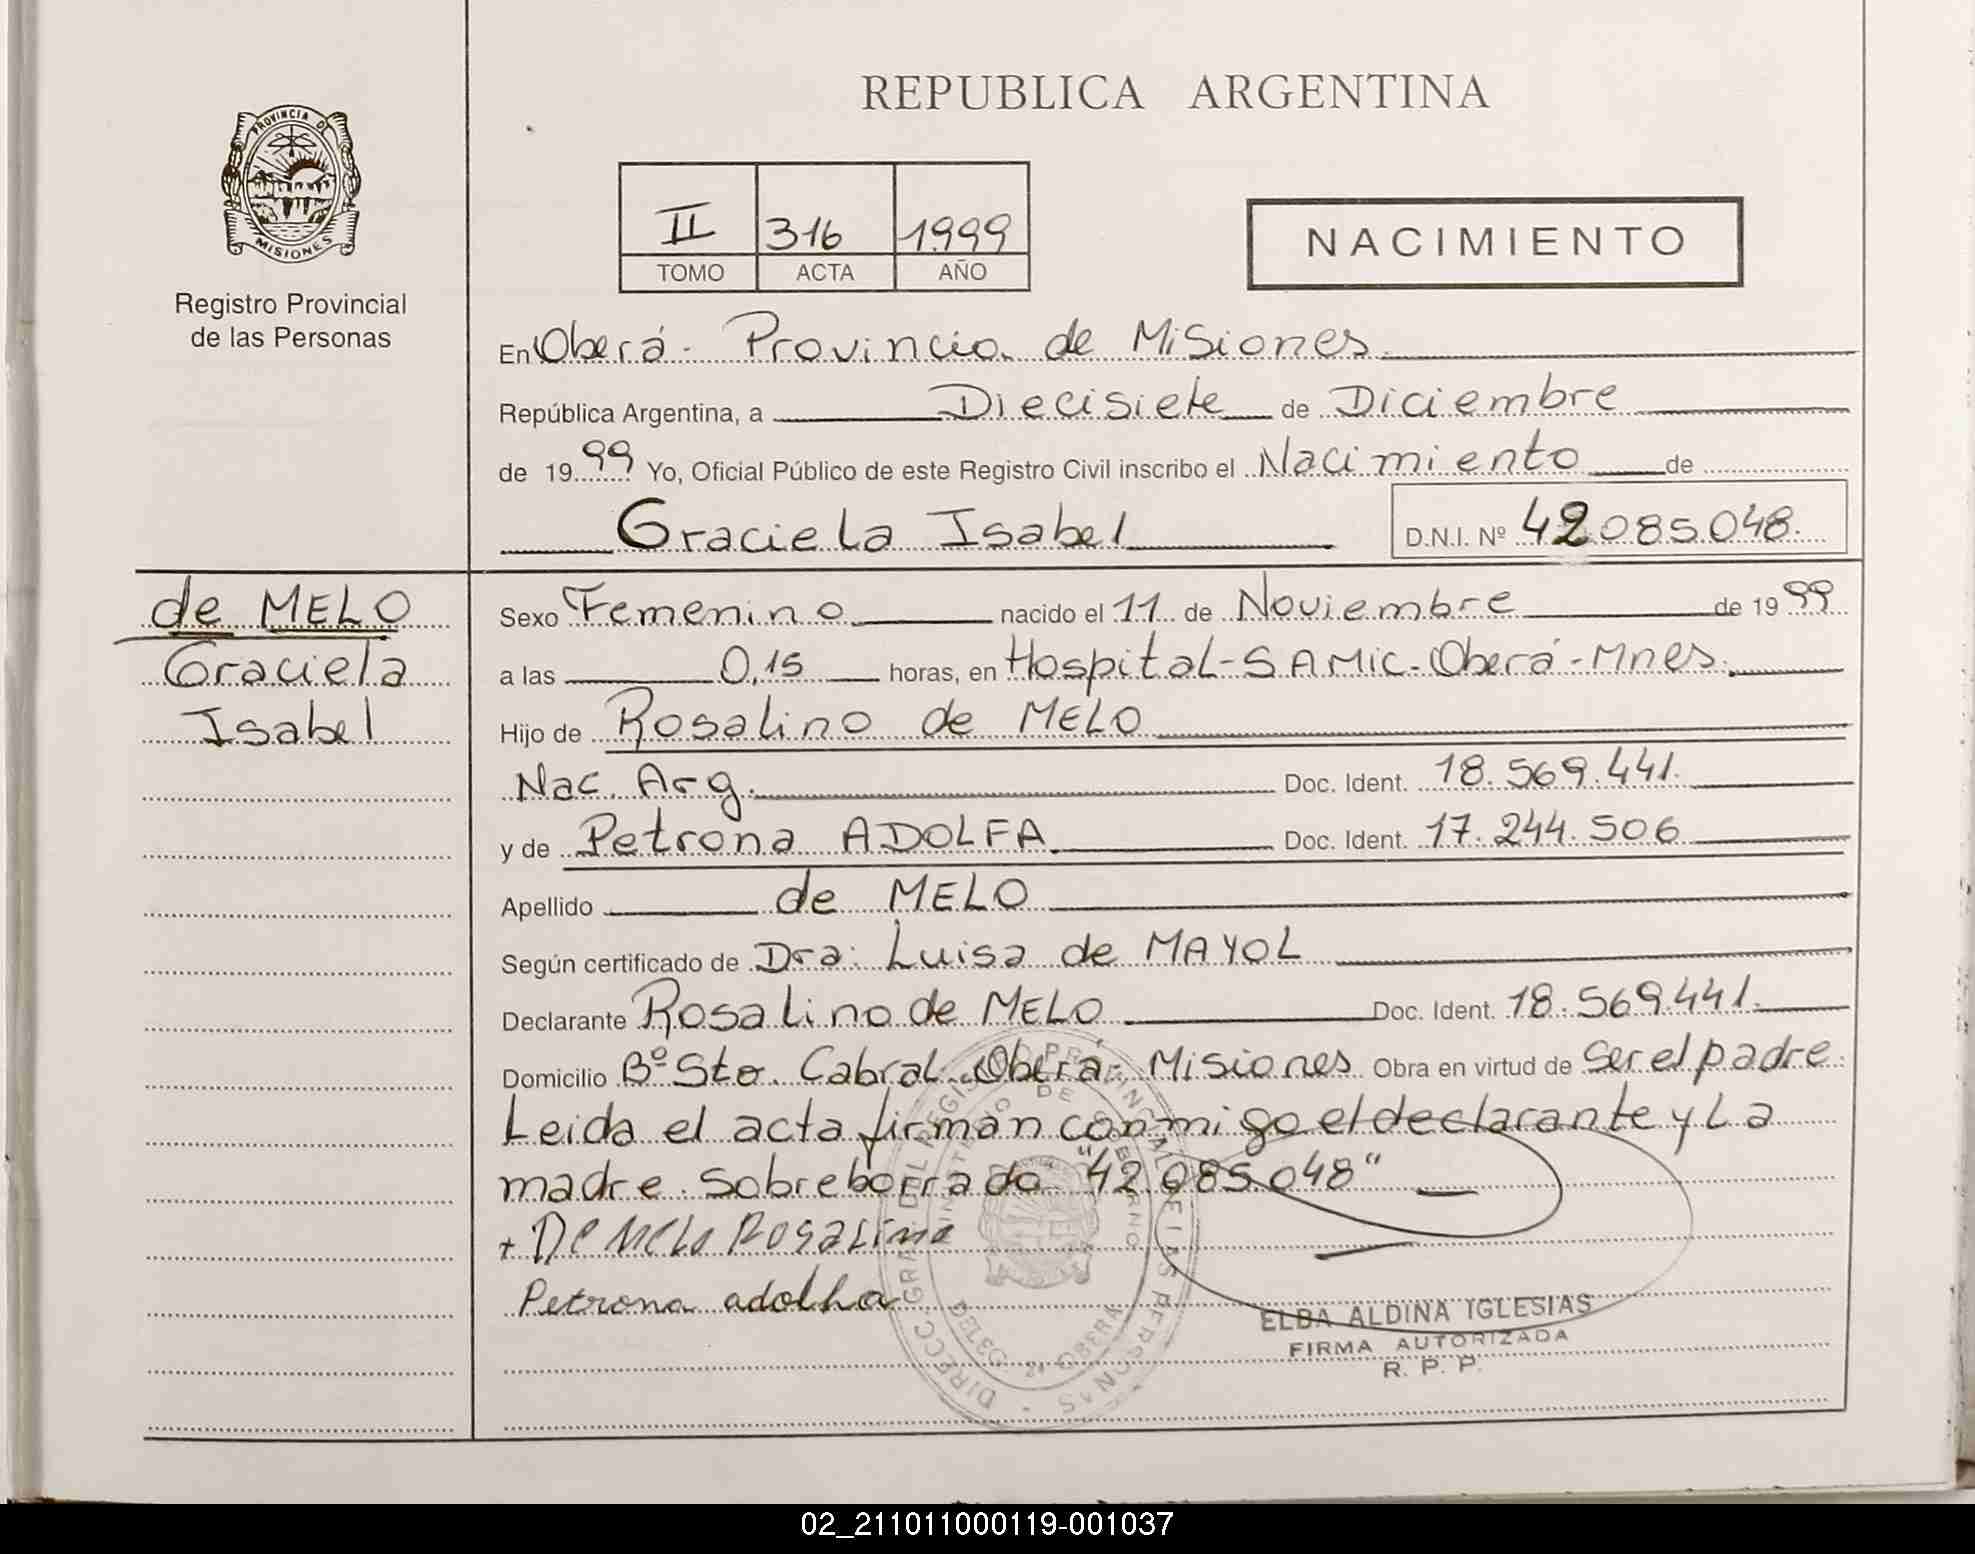 REPUBLICA ARGENTINA
PROVINCIA DE
MISIONES
Registro Provincial
de las Personas
II 316 1999
TOMO ACTA AÑO
NACIMIENTO
En Oberá - Provincia de Misiones
República Argentina, a Diecisiete de Diciembre
de 1999 Yo, Oficial Público de este Registro Civil inscribo el Nacimiento de
Graciela Isabel D.N.I. Nº 42.085.048.
de MELO
Graciela
Isabel
Sexo Femenino nacido el 11 de Noviembre de 1999
a las 0,15 horas, en Hospital - SAMic - Oberá - Mnes.
Hijo de Rosalino de MELO
Nac. Arg. Doc. Ident. 18.569.441.
y de Petrona ADOLFA Doc. Ident. 17.244.506
Apellido de MELO
Según certificado de Dra: Luisa de MAYOL
Declarante Rosalino de MELO Doc. Ident. 18.569.441.
Domicilio Bº Sto. Cabral. Oberá - Misiones Obra en virtud de Ser el padre.
Leida el acta firman conmigo el declarante y La
madre. Sobreborrado "42.085.048"
+ De Melo Rosalino
Petrona adolha
ELBA ALDINA IGLESIAS
FIRMA AUTORIZADA
R. P. P.
02_211011000119-001037